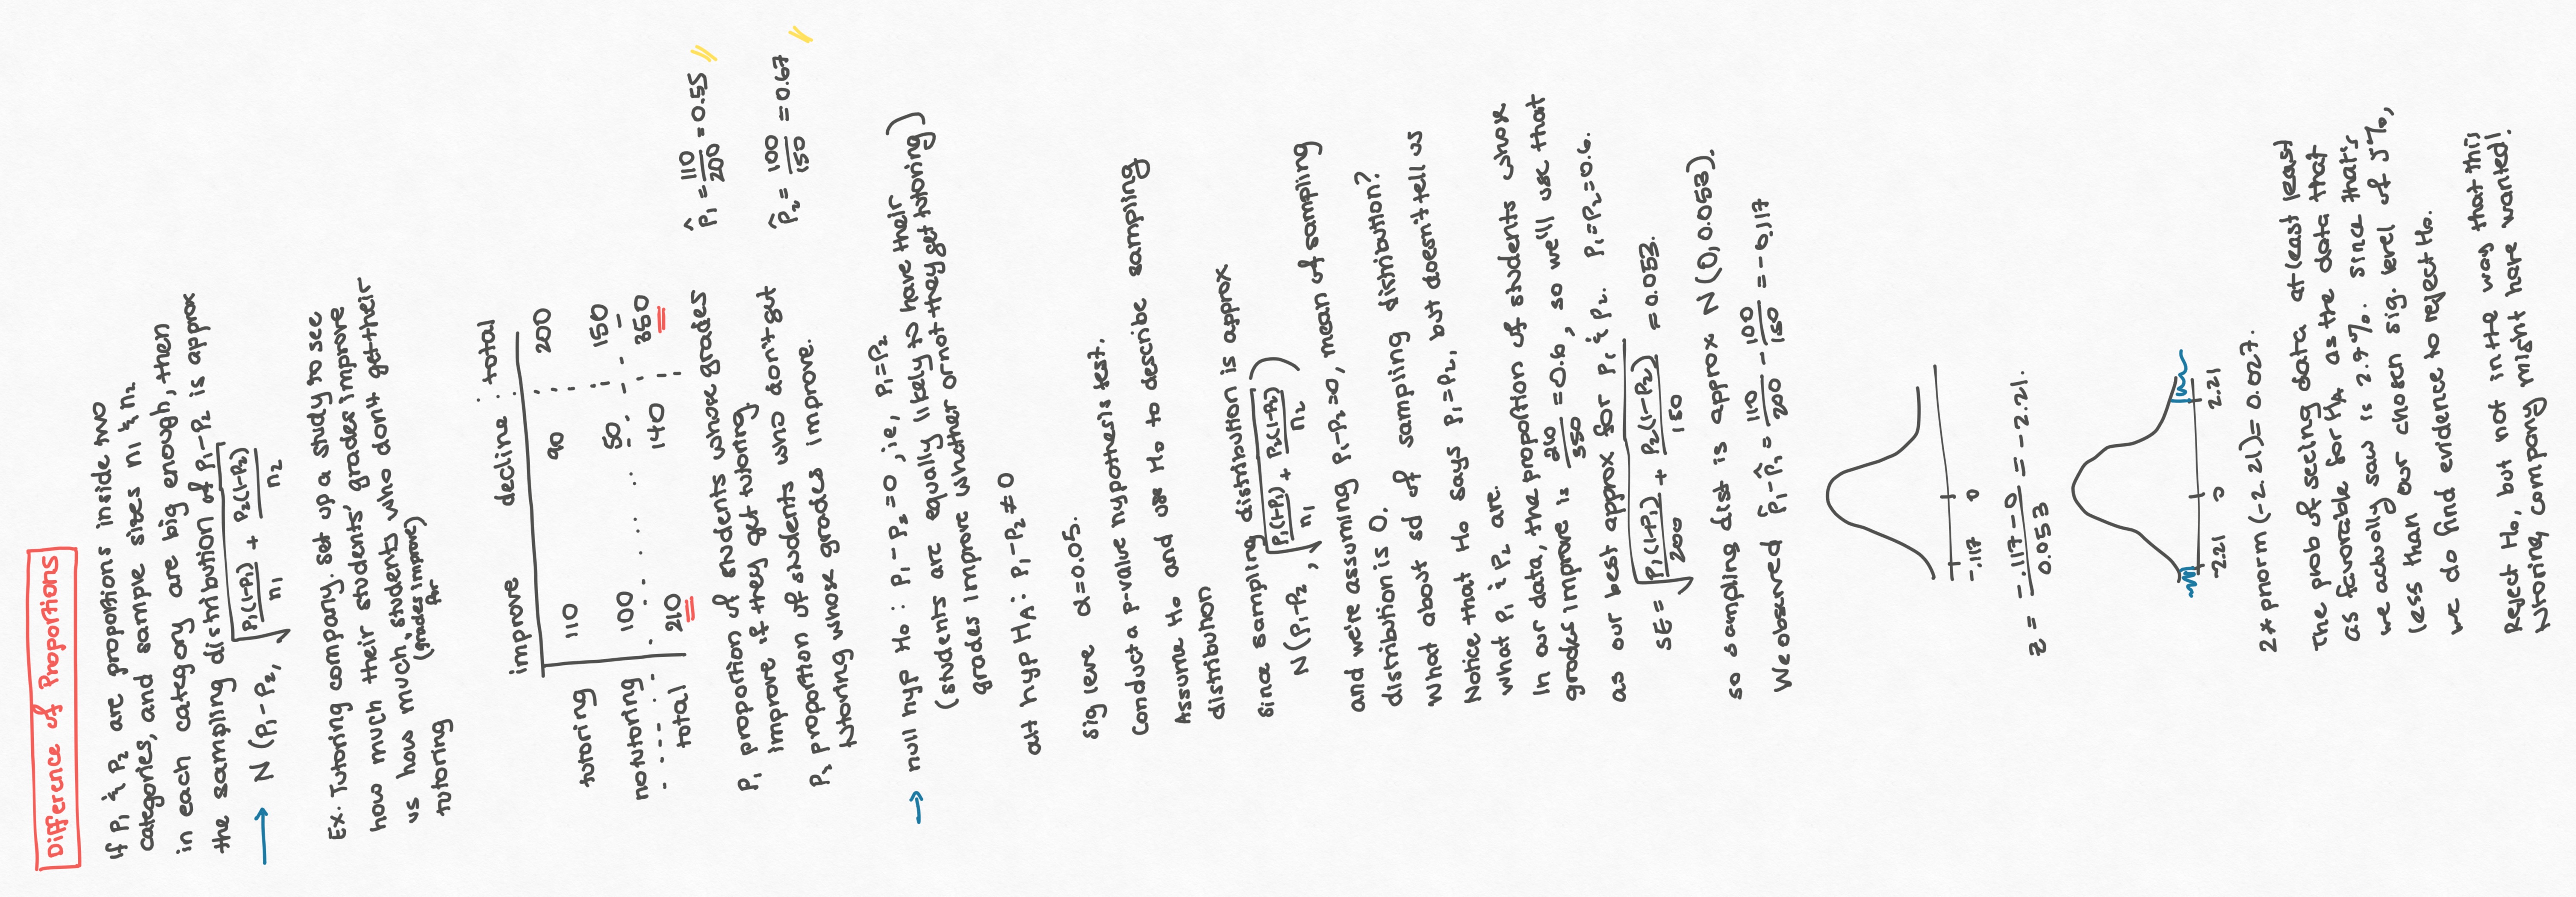 Difference of Proportions
If p₁ & p₂ are proportions inside two
categories, and sample sizes n₁ & n₂
in each category are big enough, then
the sampling distribution of p₁-p₂ is approx
→ N (p₁-p₂, √ p₁(1-p₁)/n₁ + p₂(1-p₂)/n₂
Ex. Tutoring company. Set up a study to see
how much their students' grades improve
vs how much students who don't get their
(grades improve)
for
tutoring
improve decline total
tutoring 110 90 200
no tutoring 100 50 150
total 210 140 350
p₁ proportion of students whose grades
improve if they get tutoring.
p̂₁ = 110/200 = 0.55
P₂ proportion of students who don't get
tutoring whose grades improve.
p̂₂ = 100/150 = 0.67
→ null hyp H₀: p₁-p₂=0, ie, p₁=p₂
(students are equally likely to have their
grades improve whether or not they get tutoring)
alt hyp H_A: p₁-p₂≠0
sig leve α=0.05.
Conduct a p-value hypothesis test.
Assume H₀ and use H₀ to describe sampling
distribution
Since sampling distribution is approx
N(p₁-p₂, √ p₁(1-p₁)/n₁ + p₂(1-p₂)/n₂ )
and we're assuming p₁-p₂=0, mean of sampling
distribution is 0.
What about sd of sampling distribution?
Notice that H₀ says p₁=p₂, but doesn't tell us
what p₁ & p₂ are.
In our data, the proportion of students whose
grades improve is 210/350 = 0.6, so we'll use that
as our best approx for p₁ & p₂. p₁=p₂=0.6.
SE = √ p₁(1-p₁)/200 + p₂(1-p₂)/150 = 0.053.
so sampling dist is approx N(0, 0.053).
We observed p̂₁-p̂₂ = 110/200 - 100/150 = -0.117
-.117 0
z = -.117-0/0.053 = -2.21.
-2.21 0 2.21
2*pnorm(-2.21)= 0.027.
The prob of seeing data at least least
as favorable for H_A as the data that
we actually saw is 2.7%. Since that's
less than our chosen sig. level of 5%,
we do find evidence to reject H₀.
Reject H₀, but not in the way that this
tutoring company might have wanted!